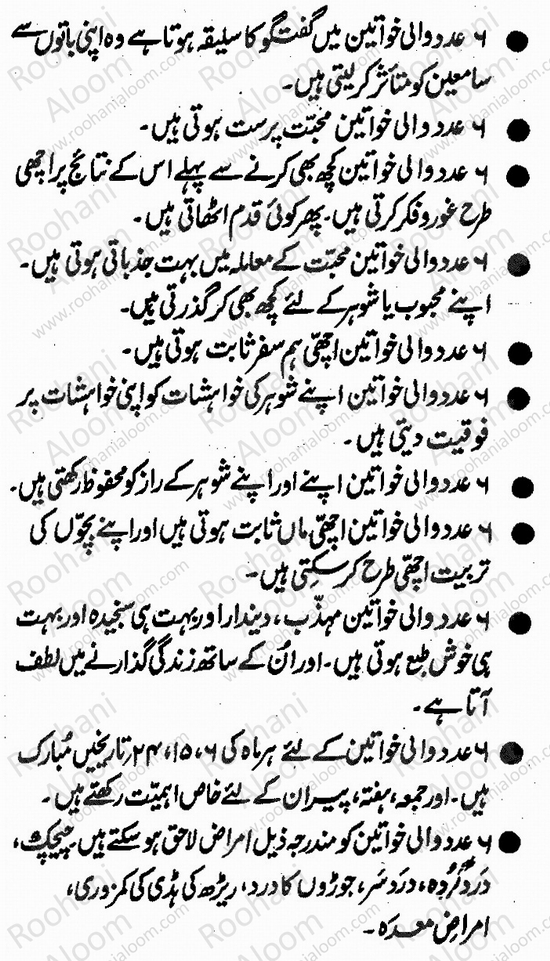 ● ۶ عدد والی خواتین میں گفتگو کا سلیقہ ہوتا ہے وہ اپنی باتوں سے
سامعین کو متأثر کرلیتی ہیں۔
● ۶ عدد والی خواتین محبّت پرست ہوتی ہیں۔
● ۶ عدد والی خواتین کچھ بھی کرنے سے پہلے اس کے نتائج پر اچھی
طرح غوروفکر کرتی ہیں۔ پھر کوئی قدم اٹھاتی ہیں۔
● ۶ عدد والی خواتین محبّت کے معاملہ میں بہت جذباتی ہوتی ہیں۔
اپنے محبوب یا شوہر کے لئے کچھ بھی کر گذرتی ہیں۔
● ۶ عدد والی خواتین اچھی ہم سفر ثابت ہوتی ہیں۔
● ۶ عدد والی خواتین اپنے شوہر کی خواہشات کو اپنی خواہشات پر
فوقیت دیتی ہیں۔
● ۶ عدد والی خواتین اپنے اور اپنے شوہر کے راز کو محفوظ رکھتی ہیں۔
● ۶ عدد والی خواتین اچھی ماں ثابت ہوتی ہیں اور اپنے بچّوں کی
تربیت اچھی طرح کرسکتی ہیں۔
● ۶ عدد والی خواتین مہذّب، دیندار اور بہت ہی سنجیدہ اور بہت
ہی خوش طبع ہوتی ہیں۔ اور اُن کے ساتھ زندگی گذارنے میں لطف
آتا ہے۔
● ۶ عدد والی خواتین کے لئے ہر ماہ کی ۶، ۱۵، ۲۴ تاریخیں مُبارک
ہیں۔ اور جمعہ، ہفتہ، پیر ان کے لئے خاص اہمیّت رکھتے ہیں۔
● ۶ عدد والی خواتین کو مندرجہ ذیل امراض لاحق ہوسکتے ہیں۔ چیچک،
دردِ گُردہ، دردِ سَر، جوڑوں کا درد، ریڑھ کی ہڈی کی کمزوری،
امراضِ معدہ۔
Roohani Aloom
www.roohanialoom.com